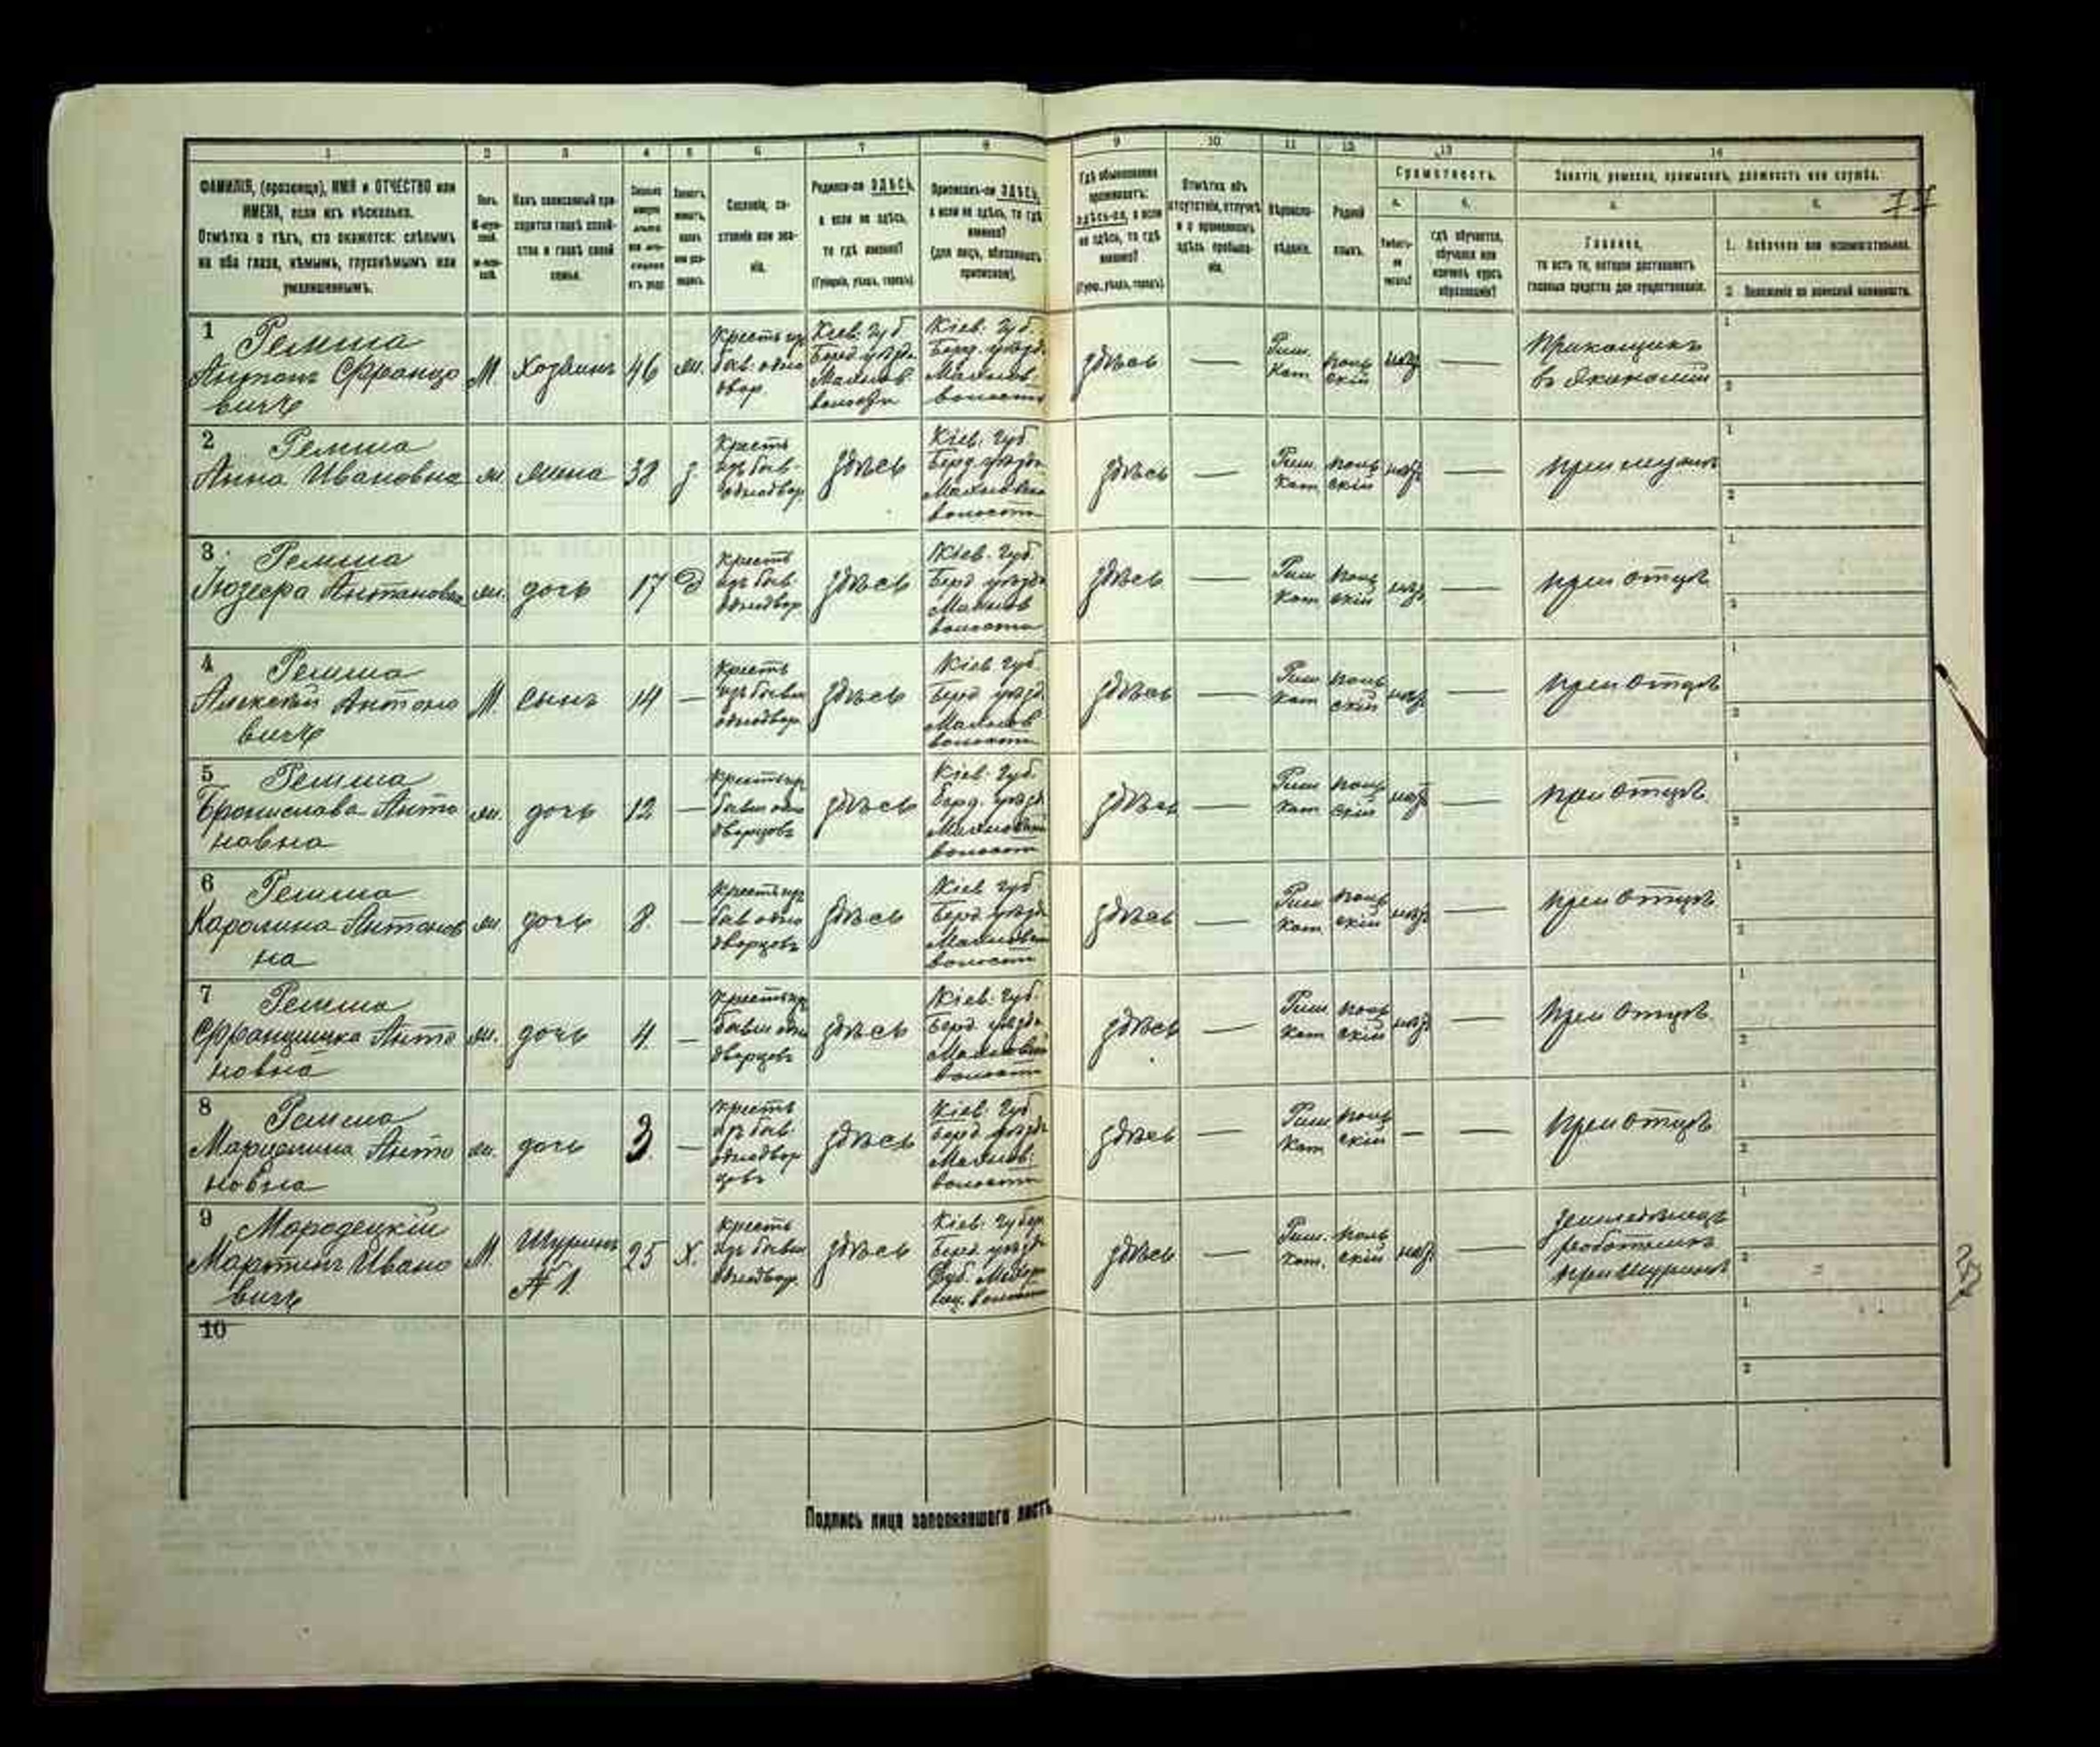 1 2 3 4 5 6 7 8 9 10 11 12 13 14
ФАМИЛІЯ, (прозвище), ИМЯ и ОТЧЕСТВО или
ИМЕНА, если ихъ нѣсколько.
Отмѣтка о тѣхъ, кто окажется: слѣпымъ
на оба глаза, нѣмымъ, глухонѣмымъ или
умалишеннымъ.
Полъ.
Какъ записанный при-
ходится главѣ хозяй-
ства и главѣ своей
семьи.
Сословіе, со-
стояніе или зва-
ніе.
Родился-ли ЗДѢСЬ,
а если не здѣсь,
то гдѣ именно?
(Губернія, уѣздъ, городъ).
Приписанъ-ли ЗДѢСЬ,
а если не здѣсь, то гдѣ
именно?
(для лицъ, обязанныхъ
припискою).
Гдѣ обыкновенно
проживаетъ:
здѣсь-ли, а если
не здѣсь, то гдѣ
именно?
(Губер., уѣздъ, городъ).
Отмѣтка объ
отсутствіи, отлучкѣ
и о временномъ
здѣсь пребыва-
ніи.
Вѣроиспо-
вѣданіе.
Родной
языкъ.
Грамотность.
а. б.
Умѣетъ-
ли
читать?
гдѣ обучается,
обучался или
кончилъ курсъ
образованія?
Занятіе, ремесло, промыселъ, должность или служба.
а. б.
77
Главное,
то есть то, которое доставляетъ
главныя средства для существованія.
1. Побочное или вспомогательное.
2. Положеніе по воинской повинности.
1 Ремша
Антонъ Францо
вичъ
М. Хозяинъ 46 ж.
Кресть изъ
бывш. одно
двор.
Кіев. губ
Берд. уѣзда
Махнов.
волости
Кіев. губ.
Берд. уѣзда
Махнов.
волости
здѣсь — Рим. Кат. поль скій нѣтъ —
Прикащикъ
въ Экономіи
2 Ремша
Анна Ивановна
ж. жена 38 з.
Кресть
изъ быв.
однодвор.
здѣсь
Кіев. губ
Берд. уѣзда
волости
здѣсь — Рим. Кат. поль скій нѣтъ —
при мужѣ
3 Ремша
Іозефа Антоновна
ж. дочь 17 д
Кресть
изъ быв.
однодвор.
здѣсь
Кіев. губ.
Берд. уѣзда
Махнов
волости
здѣсь — Рим. Кат. поль скій нѣтъ —
при отцѣ
4 Ремша
Алексѣй Антоно
вичъ
М. Сынъ 14 —
Кресть
изъ бывш
однодвор.
здѣсь
Кіев. губ.
Берд. уѣзд
Махнов
волости
здѣсь — Рим. Кат. поль скій нѣтъ —
при отцѣ
5 Ремша
Бронислава Анто
новна
ж. дочь 12 —
Кресть изъ
бывш одно
дворцовъ
здѣсь
Кіев. губ.
Берд. уѣзд
волости
здѣсь — Рим. Кат. поль скій нѣтъ —
при отцѣ
6 Ремша
Каролина Антонов
на
ж. дочь 8. —
Кресть изъ
быв одно
дворцовъ
здѣсь
Кіев. губ.
Берд. уѣзда
волости
здѣсь — Рим. Кат. поль скій нѣтъ —
при отцѣ
7 Ремша
Францишка Анто
новна
ж. дочь 4. —
Кресть изъ
бывш одно
дворцовъ
здѣсь
Кіев. губ.
Берд. уѣзда
волости
здѣсь — Рим. Кат. поль скій нѣтъ —
при отцѣ
8 Ремша
Марцелина Анто
новна
ж. дочь 3. —
Кресть
изъ быв.
однодвор
цовъ
здѣсь
Кіев. губ
Берд. уѣзда
Махнов.
волости
здѣсь — Рим. Кат. поль скій — —
при отцѣ
9 Мородецкій
Мартинъ Ивано
вичъ
М. Шуринъ
№ 1.
25 Х.
Кресть
изъ бывш
однодвор.
здѣсь
Кіев. губер.
Берд. уѣзда
волости
здѣсь — Рим. Кат. поль скій нѣтъ —
работникъ
при шуринѣ
10
Подпись лица заполнявшаго листъ